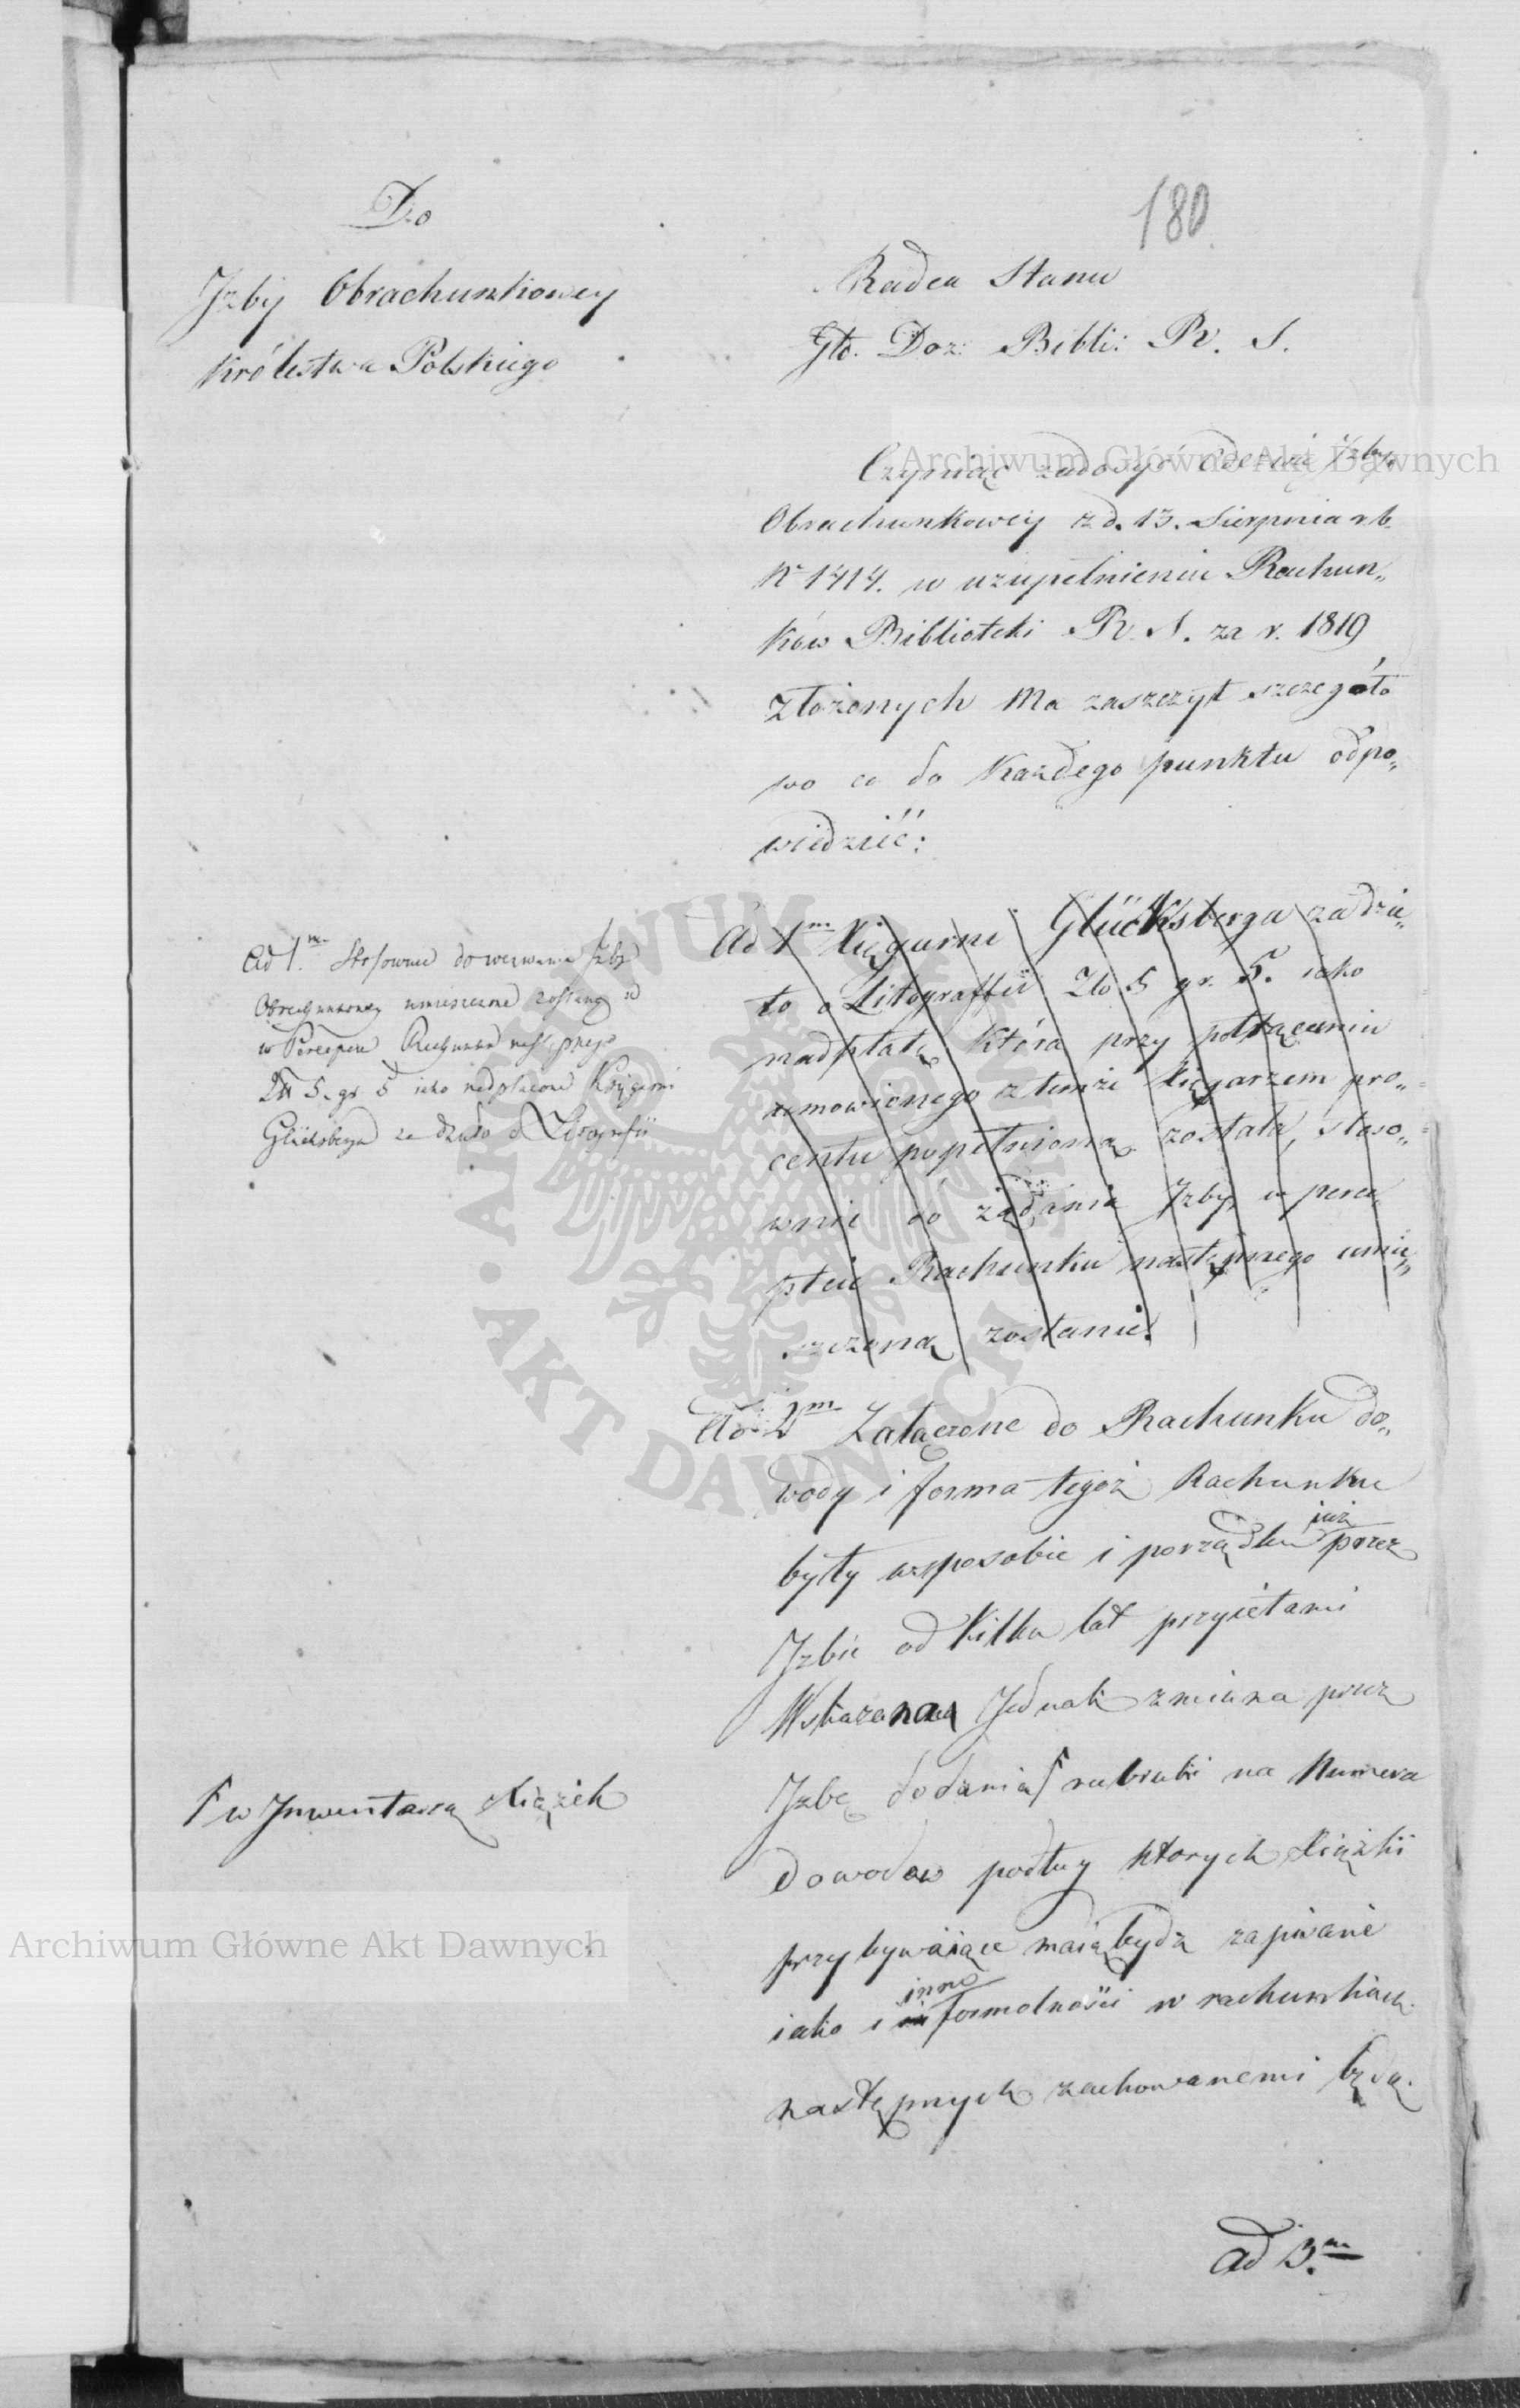 180
Do
Izby Obrachunkowey
Królestwa Polskiego
Radca Stanu
Gło. Doz: Bibli: Pu. S.
Czyniąc zadosyć Odezwie Izby
Obrachunkowey z d. 13. Sierpnia r.b.
Nr 1414. w uzupełnieniu Rachun„
ków Biblioteki Pu. S. za r. 1819
złożonych Ma zaszczyt szczegóło
wo co do każdego punktu odpo„
wiedzieć:
Ad 1m Xięgarni Glücksberga za dzie„
ło o Litografii Zło 5 gr. 5. iako
nadpłatę która przy potrąceniu
umowionego z temże Xięgarzem pro„
centu popełnioną została, stoso„
wnie do żądania Izby w perce„
ptcie Rachunku następnego umie„
szczoną zostanie.
Ad 1m Stosownie do wezwania Izby
Obrachunkowey umieszczone zostaną
w Percepcie Rachunku następnego
Zł 5. gr 5 iako nadpłacone Księgarni
Glücksberga za dzieło o Litografii
Ad 2m Załączone do Rachunku do„
wody i forma tegoż Rachunku
były w sposobie i porządku już przez
Izbie od kilku lat przyiętemi
Wskazana Jednak zmiana przez
Izbę dodania Ϝ rubryki na Numera
Ϝ w Inwentarzu Xiążek
dowodow podług ktorych Xiążki
przybywaiące maią bydź zapisane
iako i inne formalności w rachunkach
następnych zachowanemi będą.
ad 3.m
Archiwum Główne Akt Dawnych
Archiwum Główne Akt Dawnych
ARCHIWUM GŁÓWNE
AKT DAWNYCH